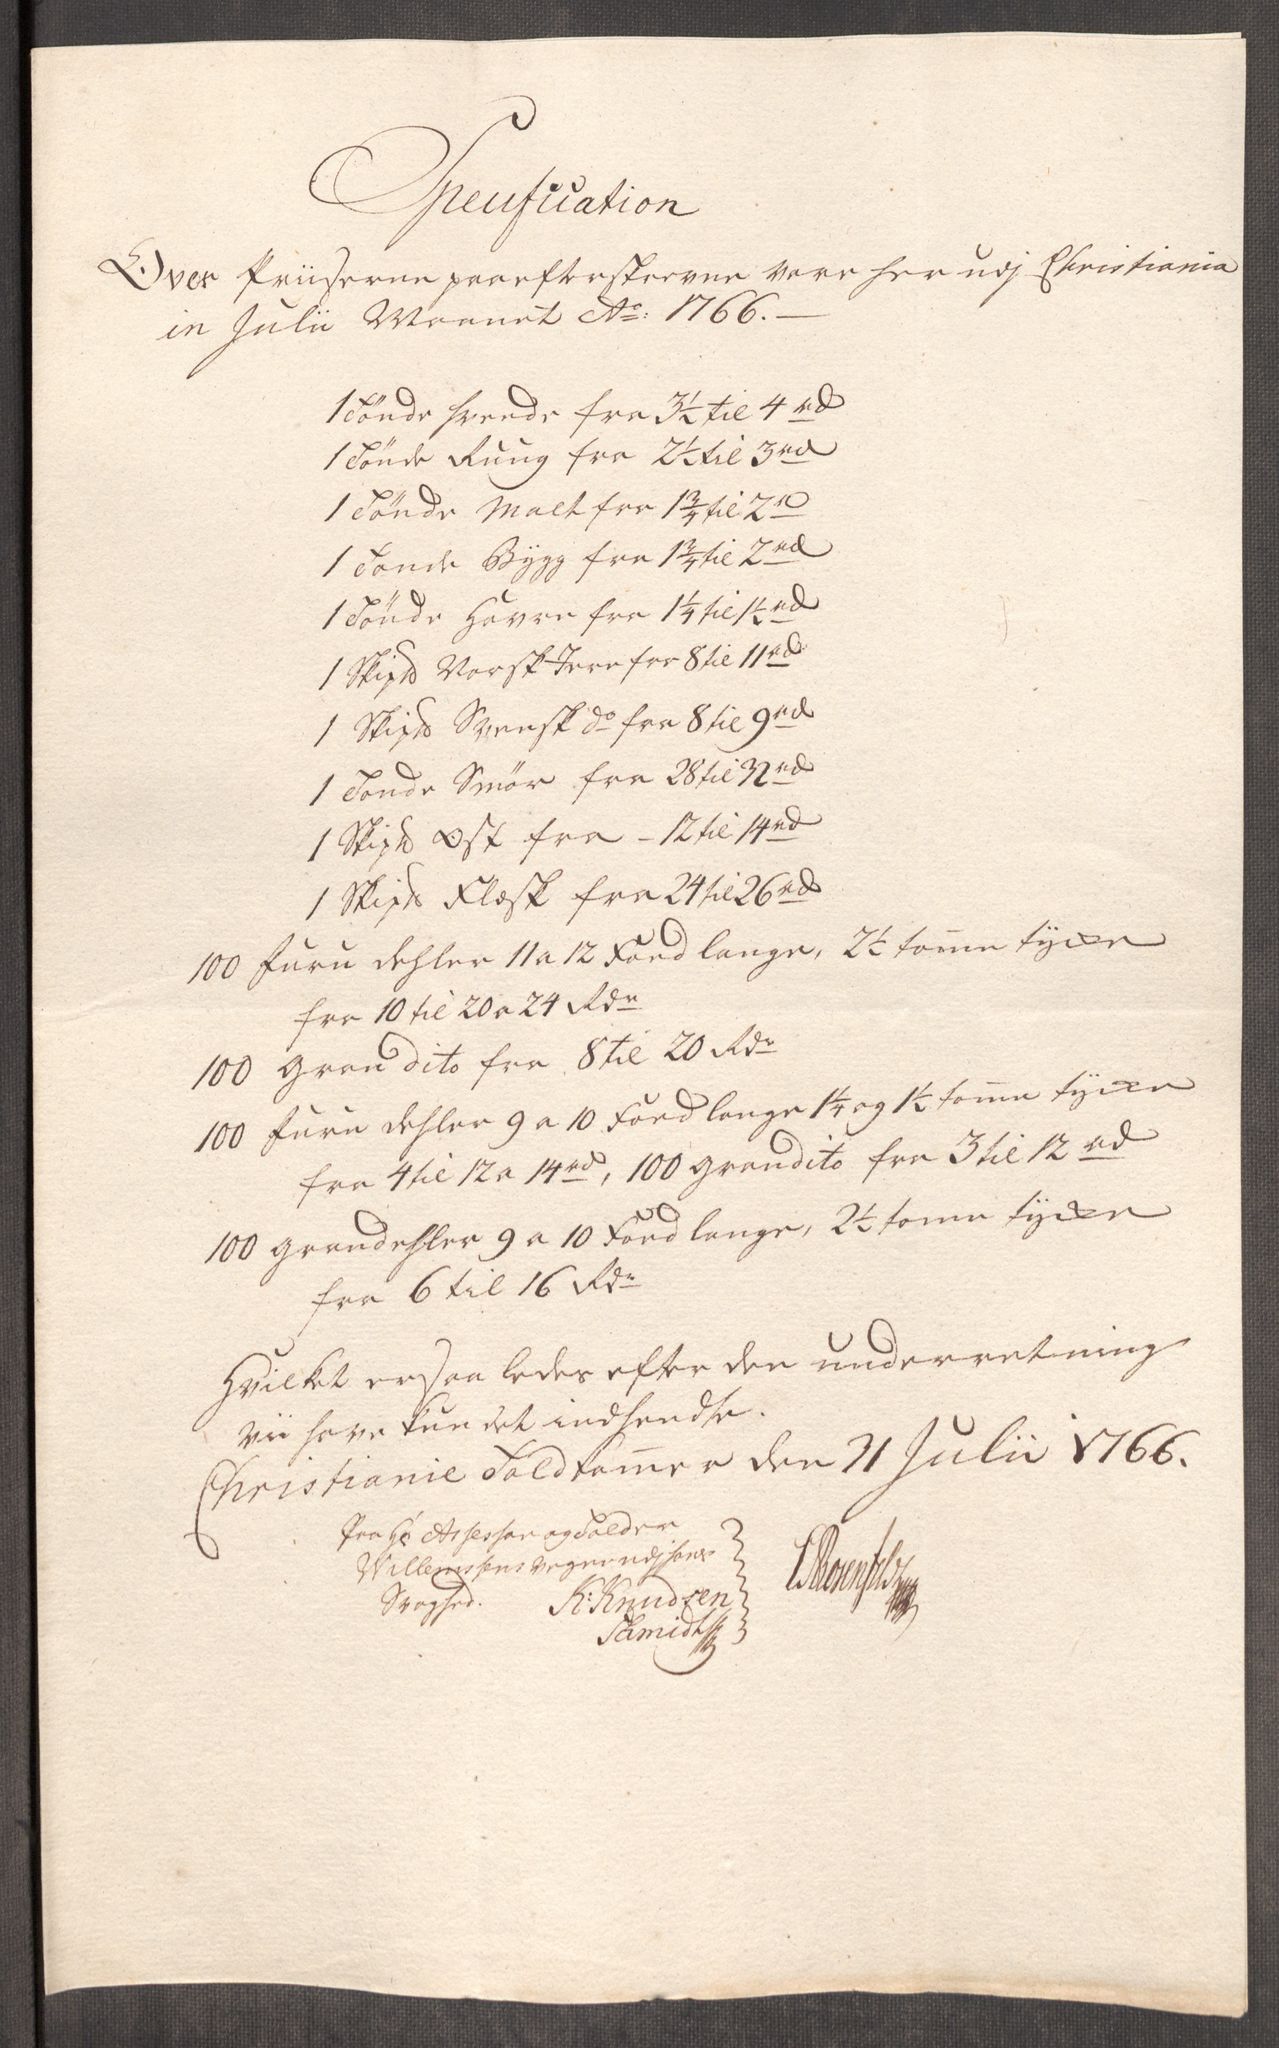 Specification
Over Priiserne paa efterskrevne vare her udj Christiania
in Julii Maanet Ao: 1766.
1 Tönde Hvede fra 3½ til 4 rd
1 Tönde Rüug fra 2½ til 3 rd
1 Tönde Malt fra 1¾ til 2 rd
1 Tönde Bÿgg fra 1¾ til 2 rd
1 Tönde Havre fra 1¼ til 1½ rd
1 Skipd Norsk Jern for 8 til 11 rd
1 Skipd Svensk do fra 8 til 9 rd
1 Tönde Smör fra 28 til 32 rd
1 Skipd Ost fra - 12 til 14 rd
1 Skipd Flæsk fra 24 til 26 rd
100 furu dehler 11 a 12 Foed lange, 2½ tomme tÿcke
fra 10 til 20 a 24 Rdr
100 gran dito fra 8 til 20 Rdr
100 furu dehler 9 a 10 Foed lange 1¼ og 1½ tomme tÿcke
fra 4 til 12 a 14 rd, 100 gran dito fra 3 til 12 rd
100 grandehler 9 a 10 Foed lange, 2½ tomme tÿcke
fra 6 til 16 Rdr
Hvilket er saaledes efter den underretning
vii have kundet indhendte.
Christianie Toldkammer den 31 Julii 1766.
Paa Hr Assessor og Tolder
Willemsens vegne udj hans
Svaghed. K: Knudsen
Schmidt
Rosenfeldt